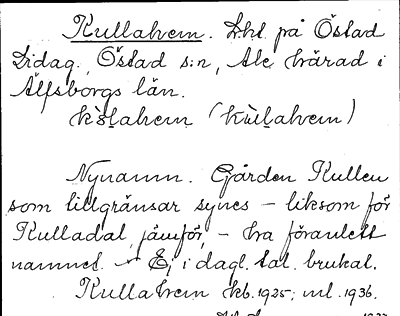 Kullahem. Lht på Östad
Östad s:n, Ale härad i
Älfsborgs län.
(kùl̥ahem)
Nynamn. Gården Kullen
som tillgränsar synes – liksom för
Kulladal, jämför, – ha föranlett
namnet. – Ej i dagl. tal. brukat.
Kullahem kb. 1925; ml. 1936.